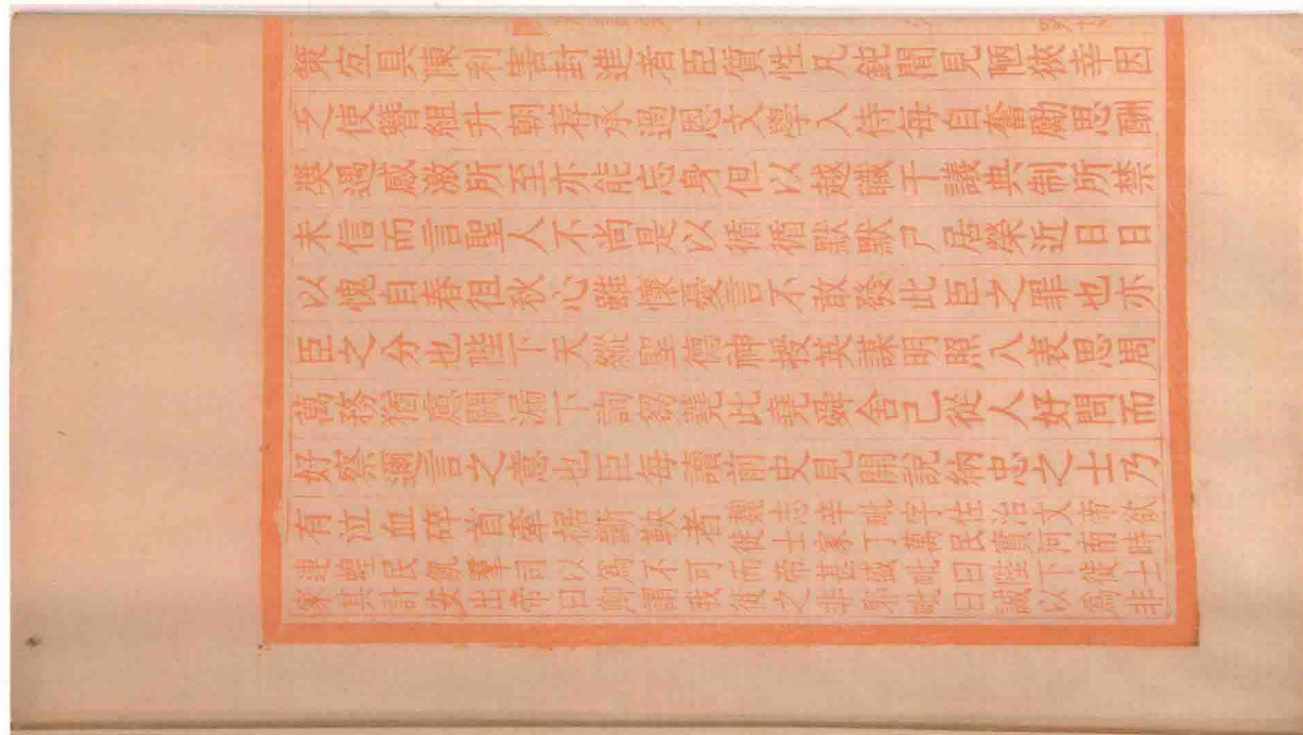 策宜具陳利害封進者臣質性凡鈍聞見陋狹幸因
乏使簪組升朝荐承過恩文學入侍每自奮勵思酬
獎遇感激所至亦能忘身但以越職干議典制所禁
未信而言聖人不尚是以循循默默尸居榮近日日
以愧自春徂秋心雖懷憂言不敢發此臣之罪也亦
臣之分也陛下天縱聖德神授英謀明照八表思周
萬務猶慮闕漏下詢芻蕘此堯舜舍己從人好問而
好察邇言之意也臣每讀前史見開說納忠之士乃
有泣血碎首牽裾斷鞅者魏志辛毗字佐治文帝欲
徙士家丁萬民實河南時
連蝗民饑羣司以爲不可而帝甚盛毗曰陛下徙士
家其計安出帝曰卿謂我徙之非邪毗曰誠以爲非